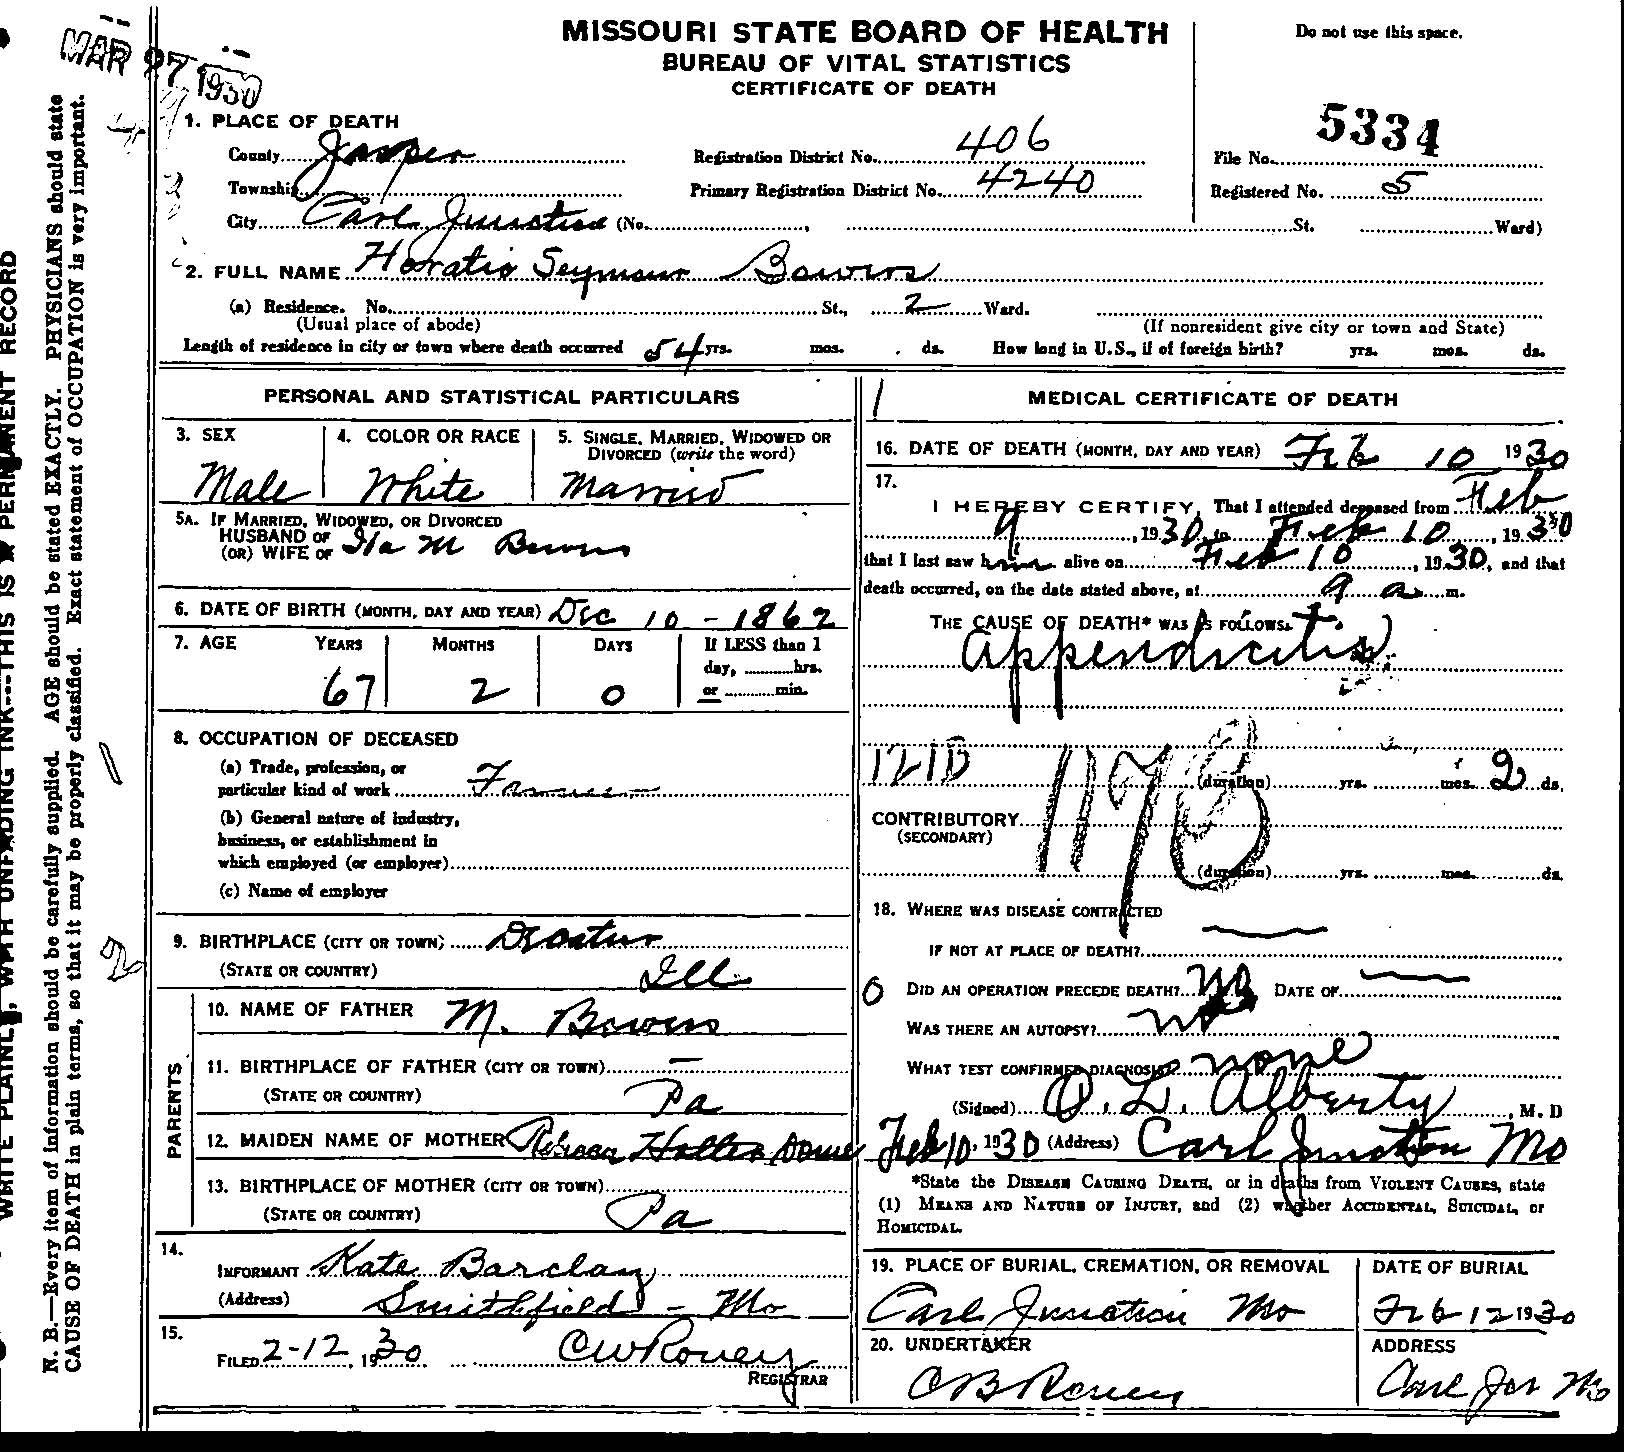 MAR 27 1930
MISSOURI STATE BOARD OF HEALTH
BUREAU OF VITAL STATISTICS
CERTIFICATE OF DEATH
Do not use this space.
5334
1. PLACE OF DEATH
County Jasper
Registration District No. 406
File No.
Township
Primary Registration District No. 4240
Registered No. 5
City Carl Junction (No. , St. Ward)
2. FULL NAME Horatio Seymour Bowers
(a) Residence. No. St., 2 Ward.
(Usual place of abode)
(If nonresident give city or town and State)
Length of residence in city or town where death occurred 54 yrs. mos. ds. How long in U.S., if of foreign birth? yrs. mos. ds.
PERSONAL AND STATISTICAL PARTICULARS
3. SEX
4. COLOR OR RACE
5. SINGLE, MARRIED, WIDOWED OR
DIVORCED (write the word)
Male White Married
5A. IF MARRIED, WIDOWED, OR DIVORCED
HUSBAND OF
(OR) WIFE OF Ida M Bowers
6. DATE OF BIRTH (MONTH, DAY AND YEAR) Dec 10 - 1862
7. AGE YEARS MONTHS DAYS If LESS than 1
day, hrs.
or min.
67 2 0
8. OCCUPATION OF DECEASED
(a) Trade, profession, or
particular kind of work Farmer
(b) General nature of industry,
business, or establishment in
which employed (or employer)
(c) Name of employer
9. BIRTHPLACE (CITY OR TOWN) Decatur
(STATE OR COUNTRY) Ill
PARENTS
10. NAME OF FATHER M. Bowers
11. BIRTHPLACE OF FATHER (CITY OR TOWN) —
(STATE OR COUNTRY) Pa
12. MAIDEN NAME OF MOTHER Rebecca
13. BIRTHPLACE OF MOTHER (CITY OR TOWN)
(STATE OR COUNTRY) Pa
14.
INFORMANT Kate Barclay
(Address) Smithfield - Mo
15.
FILED 2-12, 1930 CW Roney
REGISTRAR
1
MEDICAL CERTIFICATE OF DEATH
16. DATE OF DEATH (MONTH, DAY AND YEAR) Feb 10 1930
17.
I HEREBY CERTIFY, That I attended deceased from Feb
9, 1930, to Feb 10, 1930
that I last saw him alive on Feb 10, 1930, and that
death occurred, on the date stated above, at 9 a m.
THE CAUSE OF DEATH* WAS AS FOLLOWS:
Appendicitis
121B 117B
(duration) yrs. mos. 2 ds.
CONTRIBUTORY
(SECONDARY)
(duration) yrs. mos. ds.
18. WHERE WAS DISEASE CONTRACTED
IF NOT AT PLACE OF DEATH? —
0 DID AN OPERATION PRECEDE DEATH? No DATE OF —
WAS THERE AN AUTOPSY? no
WHAT TEST CONFIRMED DIAGNOSIS? none
(Signed) O. L. Alberty, M. D
Feb 10, 1930 (Address) Carl Junction Mo
*State the DISEASE CAUSING DEATH, or in deaths from VIOLENT CAUSES, state
(1) MEANS AND NATURE OF INJURY, and (2) whether ACCIDENTAL, SUICIDAL, or
HOMICIDAL.
19. PLACE OF BURIAL, CREMATION, OR REMOVAL
DATE OF BURIAL
Carl Junction Mo Feb 12 1930
20. UNDERTAKER
ADDRESS
CB Roney Carl Jct Mo
WRITE PLAINLY, WITH UNFADING INK---THIS IS A PERMANENT RECORD
N. B.—Every item of information should be carefully supplied. AGE should be stated EXACTLY. PHYSICIANS should state
CAUSE OF DEATH in plain terms, so that it may be properly classified. Exact statement of OCCUPATION is very important.